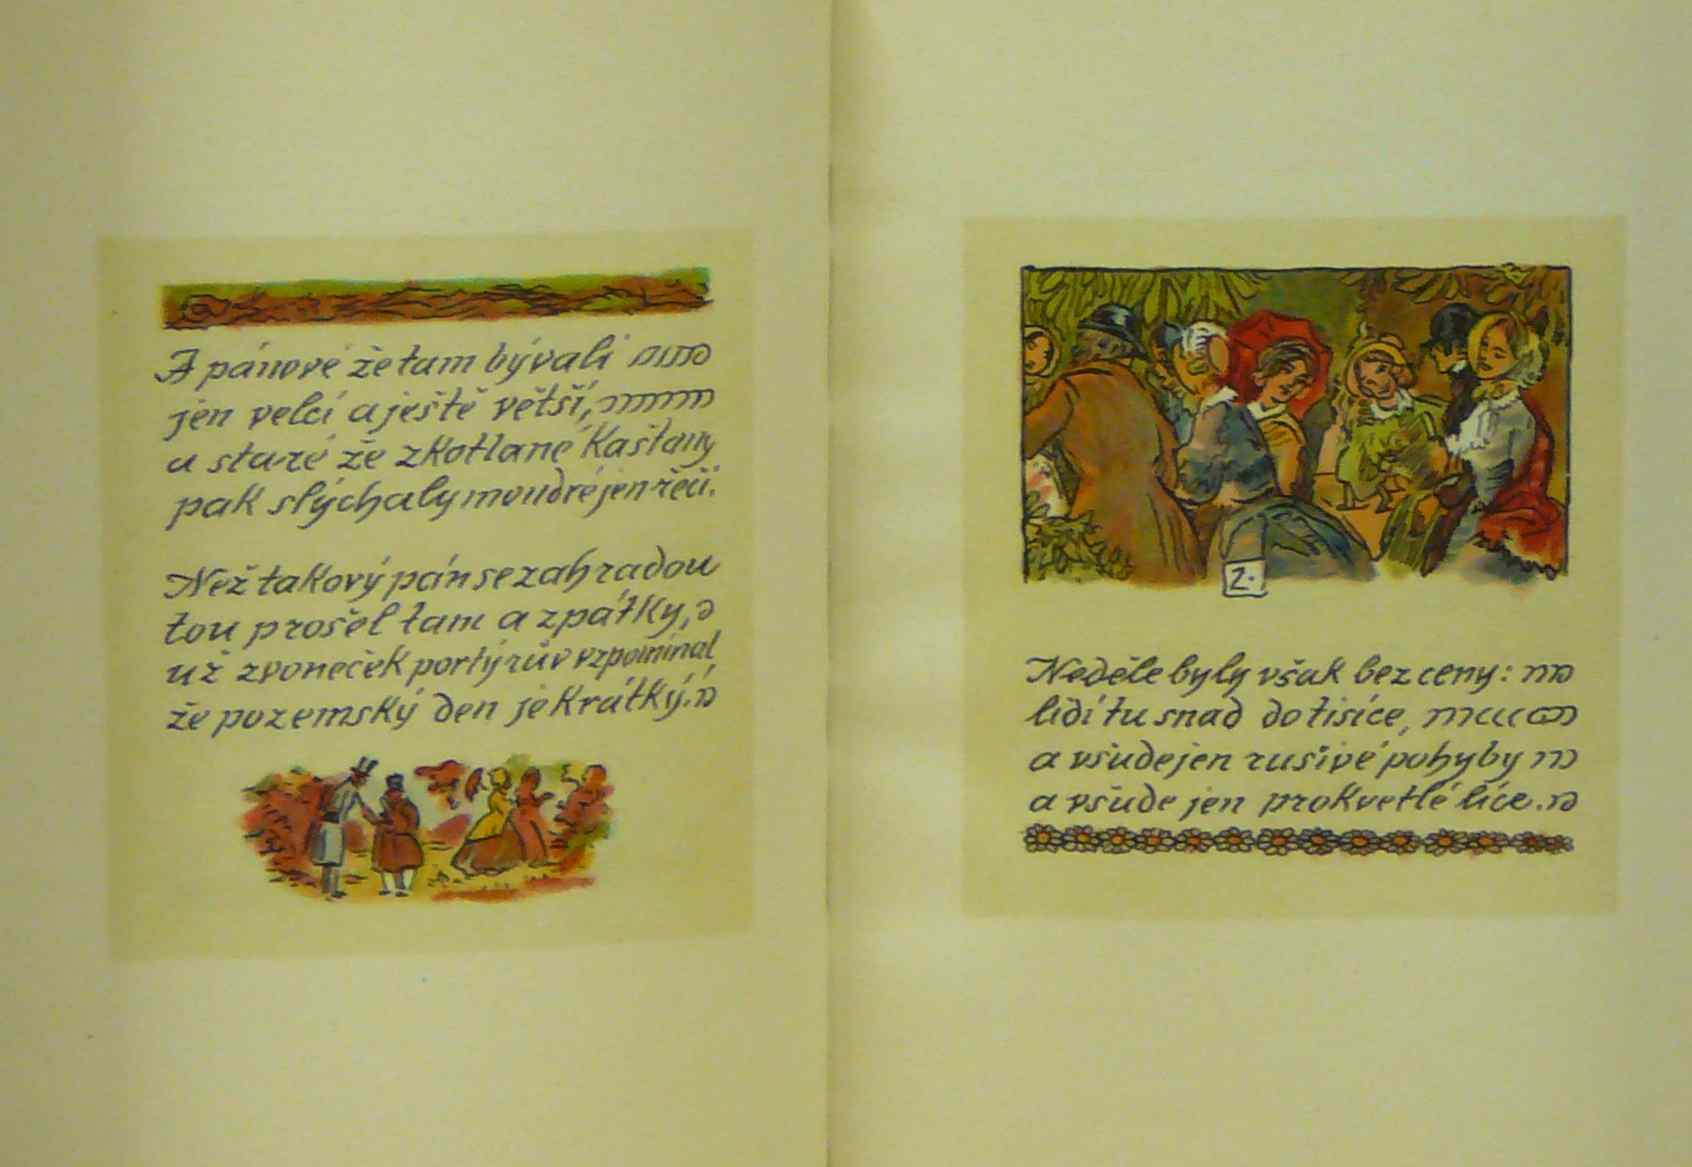 A pánové že tam bývali
jen velcí a ještě větší,
a staré že zkotlané kaštany
pak slýchaly moudré jen řeči.
Než takový pán se zahradou
tou prošel tam a zpátky,
už zvoneček portýrův vzpomínal,
že pozemský den je krátký.
2.
Neděle byly však bez ceny:
lidí tu snad do tisíce,
a všude jen rušivé pohyby
a všude jen prokvetlé líce.